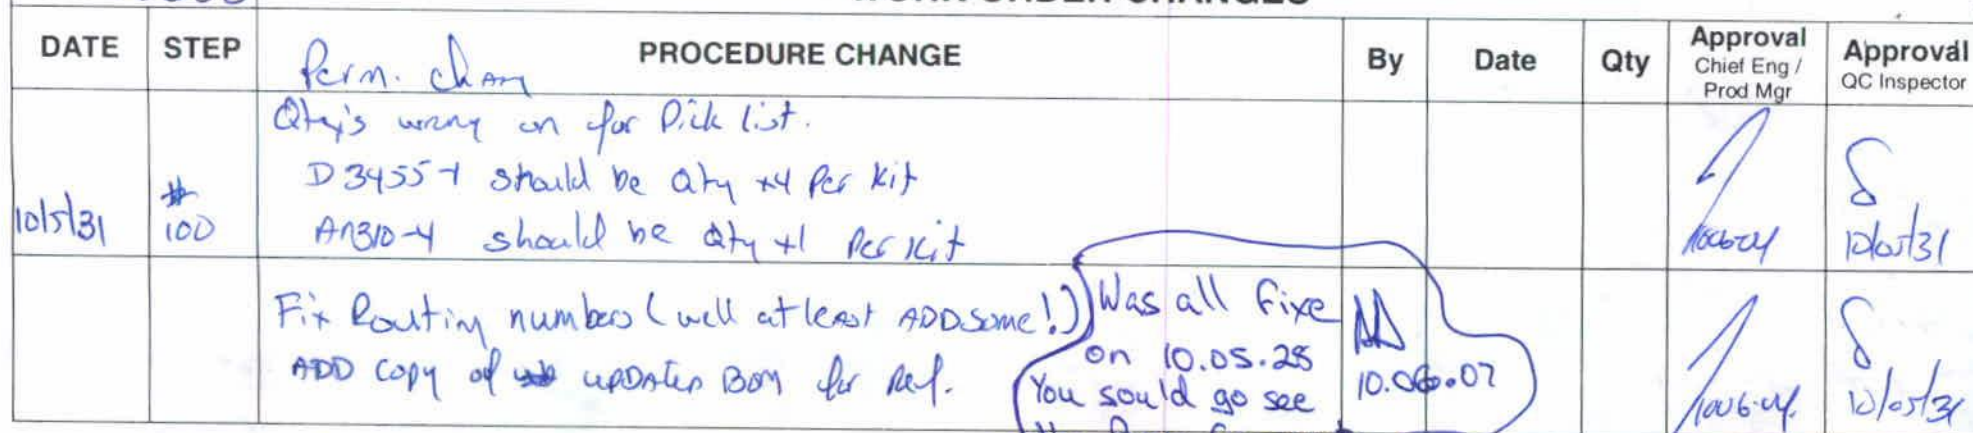 WORK ORDER CHANGES
DATE STEP PROCEDURE CHANGE By Date Qty Approval Chief Eng / Prod Mgr Approval QC Inspector
Perm. chang
Qty's wrong on for Pick list.
D3455-1 should be Qty x4 Per Kit
10/5/31 # 100 AN310-4 should be Qty x1 Per Kit 10/05/31
Fix Routing numbers (well at least ADD some!)
ADD copy of UPDATED BOM for Ref.
Was all fixe
on 10.05.28
You sould go see
10.06.07
10/05/31